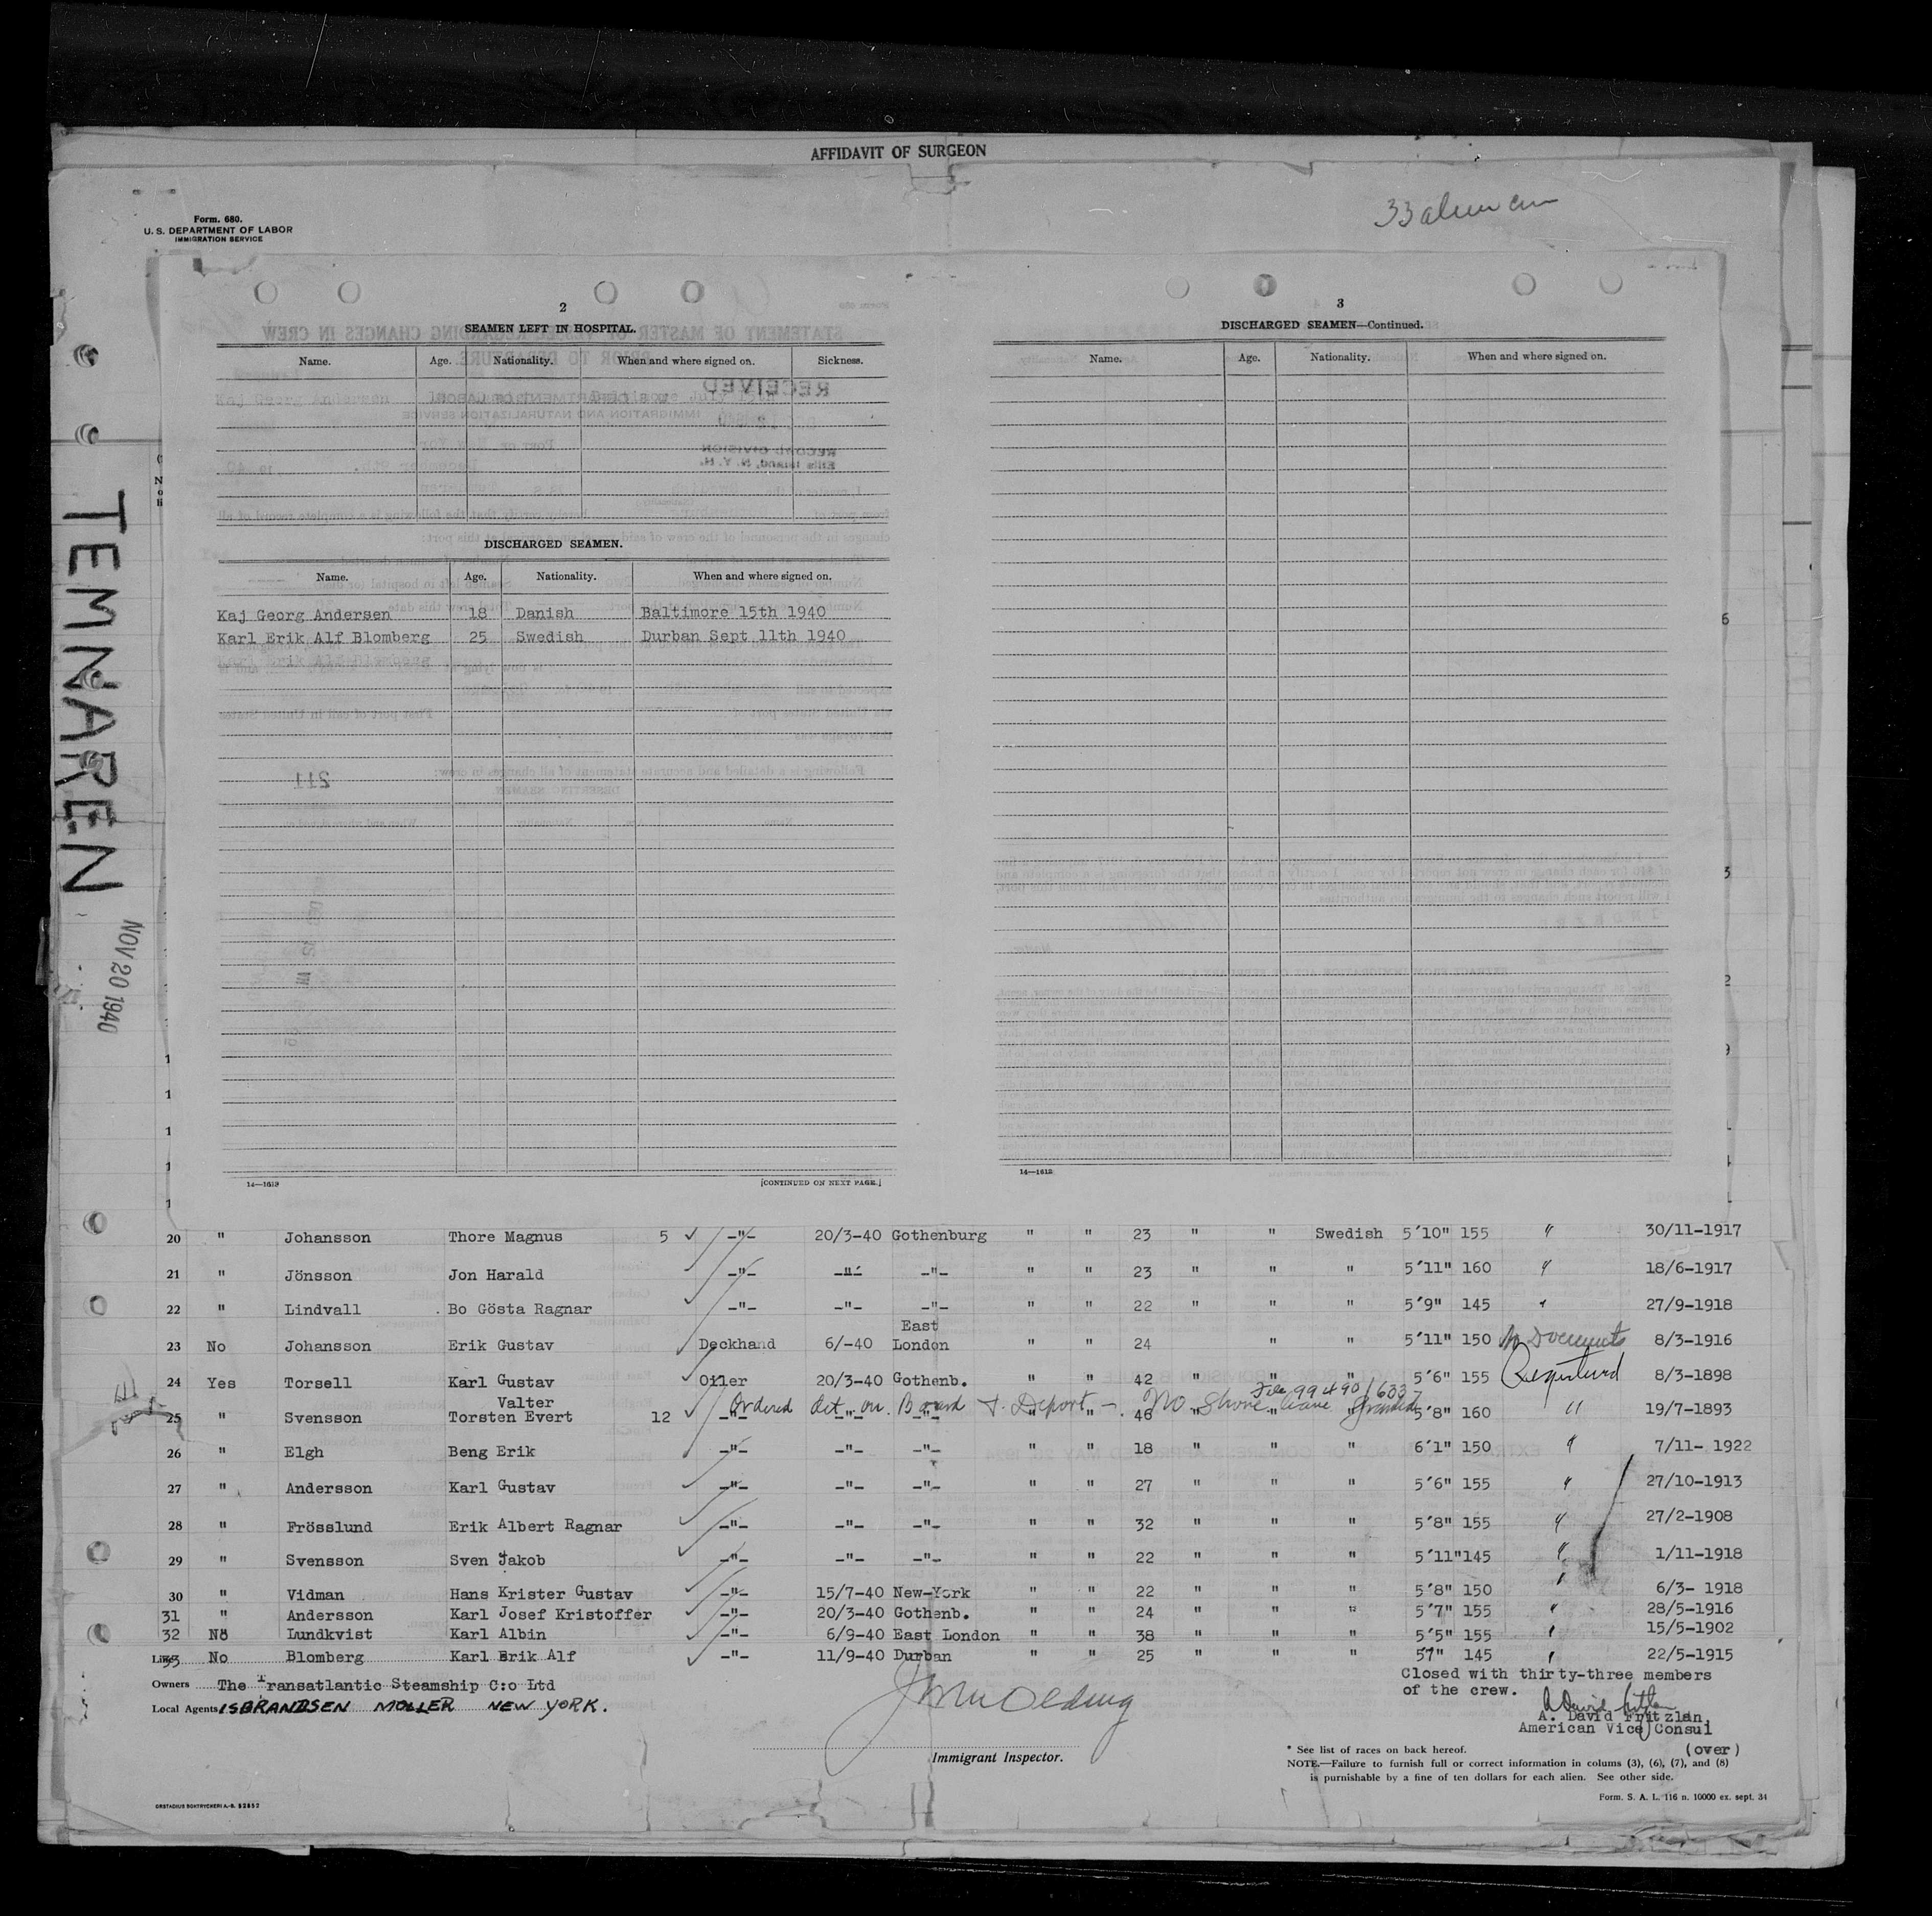 AFFIDAVIT OF SURGEON
33
Form. 680.
U. S. DEPARTMENT OF LABOR
IMMIGRATION SERVICE
TEMNAREN
NOV 20 1940
2
SEAMEN LEFT IN HOSPITAL.
Name. Age. Nationality. When and where signed on. Sickness.
DISCHARGED SEAMEN.
Name. Age. Nationality. When and where signed on.
Kaj Georg Andersen 18 Danish Baltimore 15th 1940
Karl Erik Alf Blomberg 25 Swedish Durban Sept 11th 1940
14—1613
[CONTINUED ON NEXT PAGE.]
3
DISCHARGED SEAMEN—Continued.
Name. Age. Nationality. When and where signed on.
14—1613
20 " Johansson Thore Magnus 5 ✓ -"- 20/3-40 Gothenburg " " 23 " " Swedish 5'10" 155 " 30/11-1917
21 " Jönsson Jon Harald ✓ -"- -"- -"- " " 23 " " " 5'11" 160 " 18/6-1917
22 " Lindvall Bo Gösta Ragnar ✓ -"- -"- -"- " " 22 " " " 5'9" 145 " 27/9-1918
23 No Johansson Erik Gustav ✓ Deckhand 6/-40 East London " " 24 " " 5'11" 150 No Documents 8/3-1916
24 Yes Torsell Karl Gustav ✓ Oiler 20/3-40 Gothenb. " " 42 " " " 5'6" 155 Registered 8/3-1898
Ordered det. on Board & Deport - No Shore leave granted File 99490/6337
25 " Svensson Valter Torsten Evert 12 ✓ -"- -"- -"- " " 46 " " " 5'8" 160 " 19/7-1893
26 " Elgh Beng Erik ✓ -"- -"- -"- " " 18 " " " 6'1" 150 " 7/11- 1922
27 " Andersson Karl Gustav ✓ -"- -"- -"- " " 27 " " " 5'6" 155 " 27/10-1913
28 " Frösslund Erik Albert Ragnar ✓ -"- -"- -"- " " 32 " " " 5'8" 155 " 27/2-1908
29 " Svensson Sven Jakob ✓ -"- -"- -"- " " 22 " " " 5'11" 145 " 1/11-1918
30 " Vidman Hans Krister Gustav ✓ -"- 15/7-40 New-York " " 22 " " " 5'8" 150 " 6/3- 1918
31 " Andersson Karl Josef Kristoffer ✓ -"- 20/3-40 Gothenb. " " 24 " " " 5'7" 155 " 28/5-1916
32 No Lundkvist Karl Albin ✓ -"- 6/9-40 East London " " 38 " " " 5'5" 155 " 15/5-1902
33 No Blomberg Karl Erik Alf ✓ -"- 11/9-40 Durban " " 25 " " " 5'7" 145 " 22/5-1915
Owners The Transatlantic Steamship C:o Ltd
Local Agents ISBRANDSEN MOLLER NEW YORK.
Immigrant Inspector.
Closed with thirty-three members
of the crew.
A. David Fritzlan
American Vice Consul
(over)
* See list of races on back hereof.
NOTE.—Failure to furnish full or correct information in colums (3), (6), (7), and (8)
is punishable by a fine of ten dollars for each alien. See other side.
Form. S. A. L. 116 n. 10000 ex. sept. 34